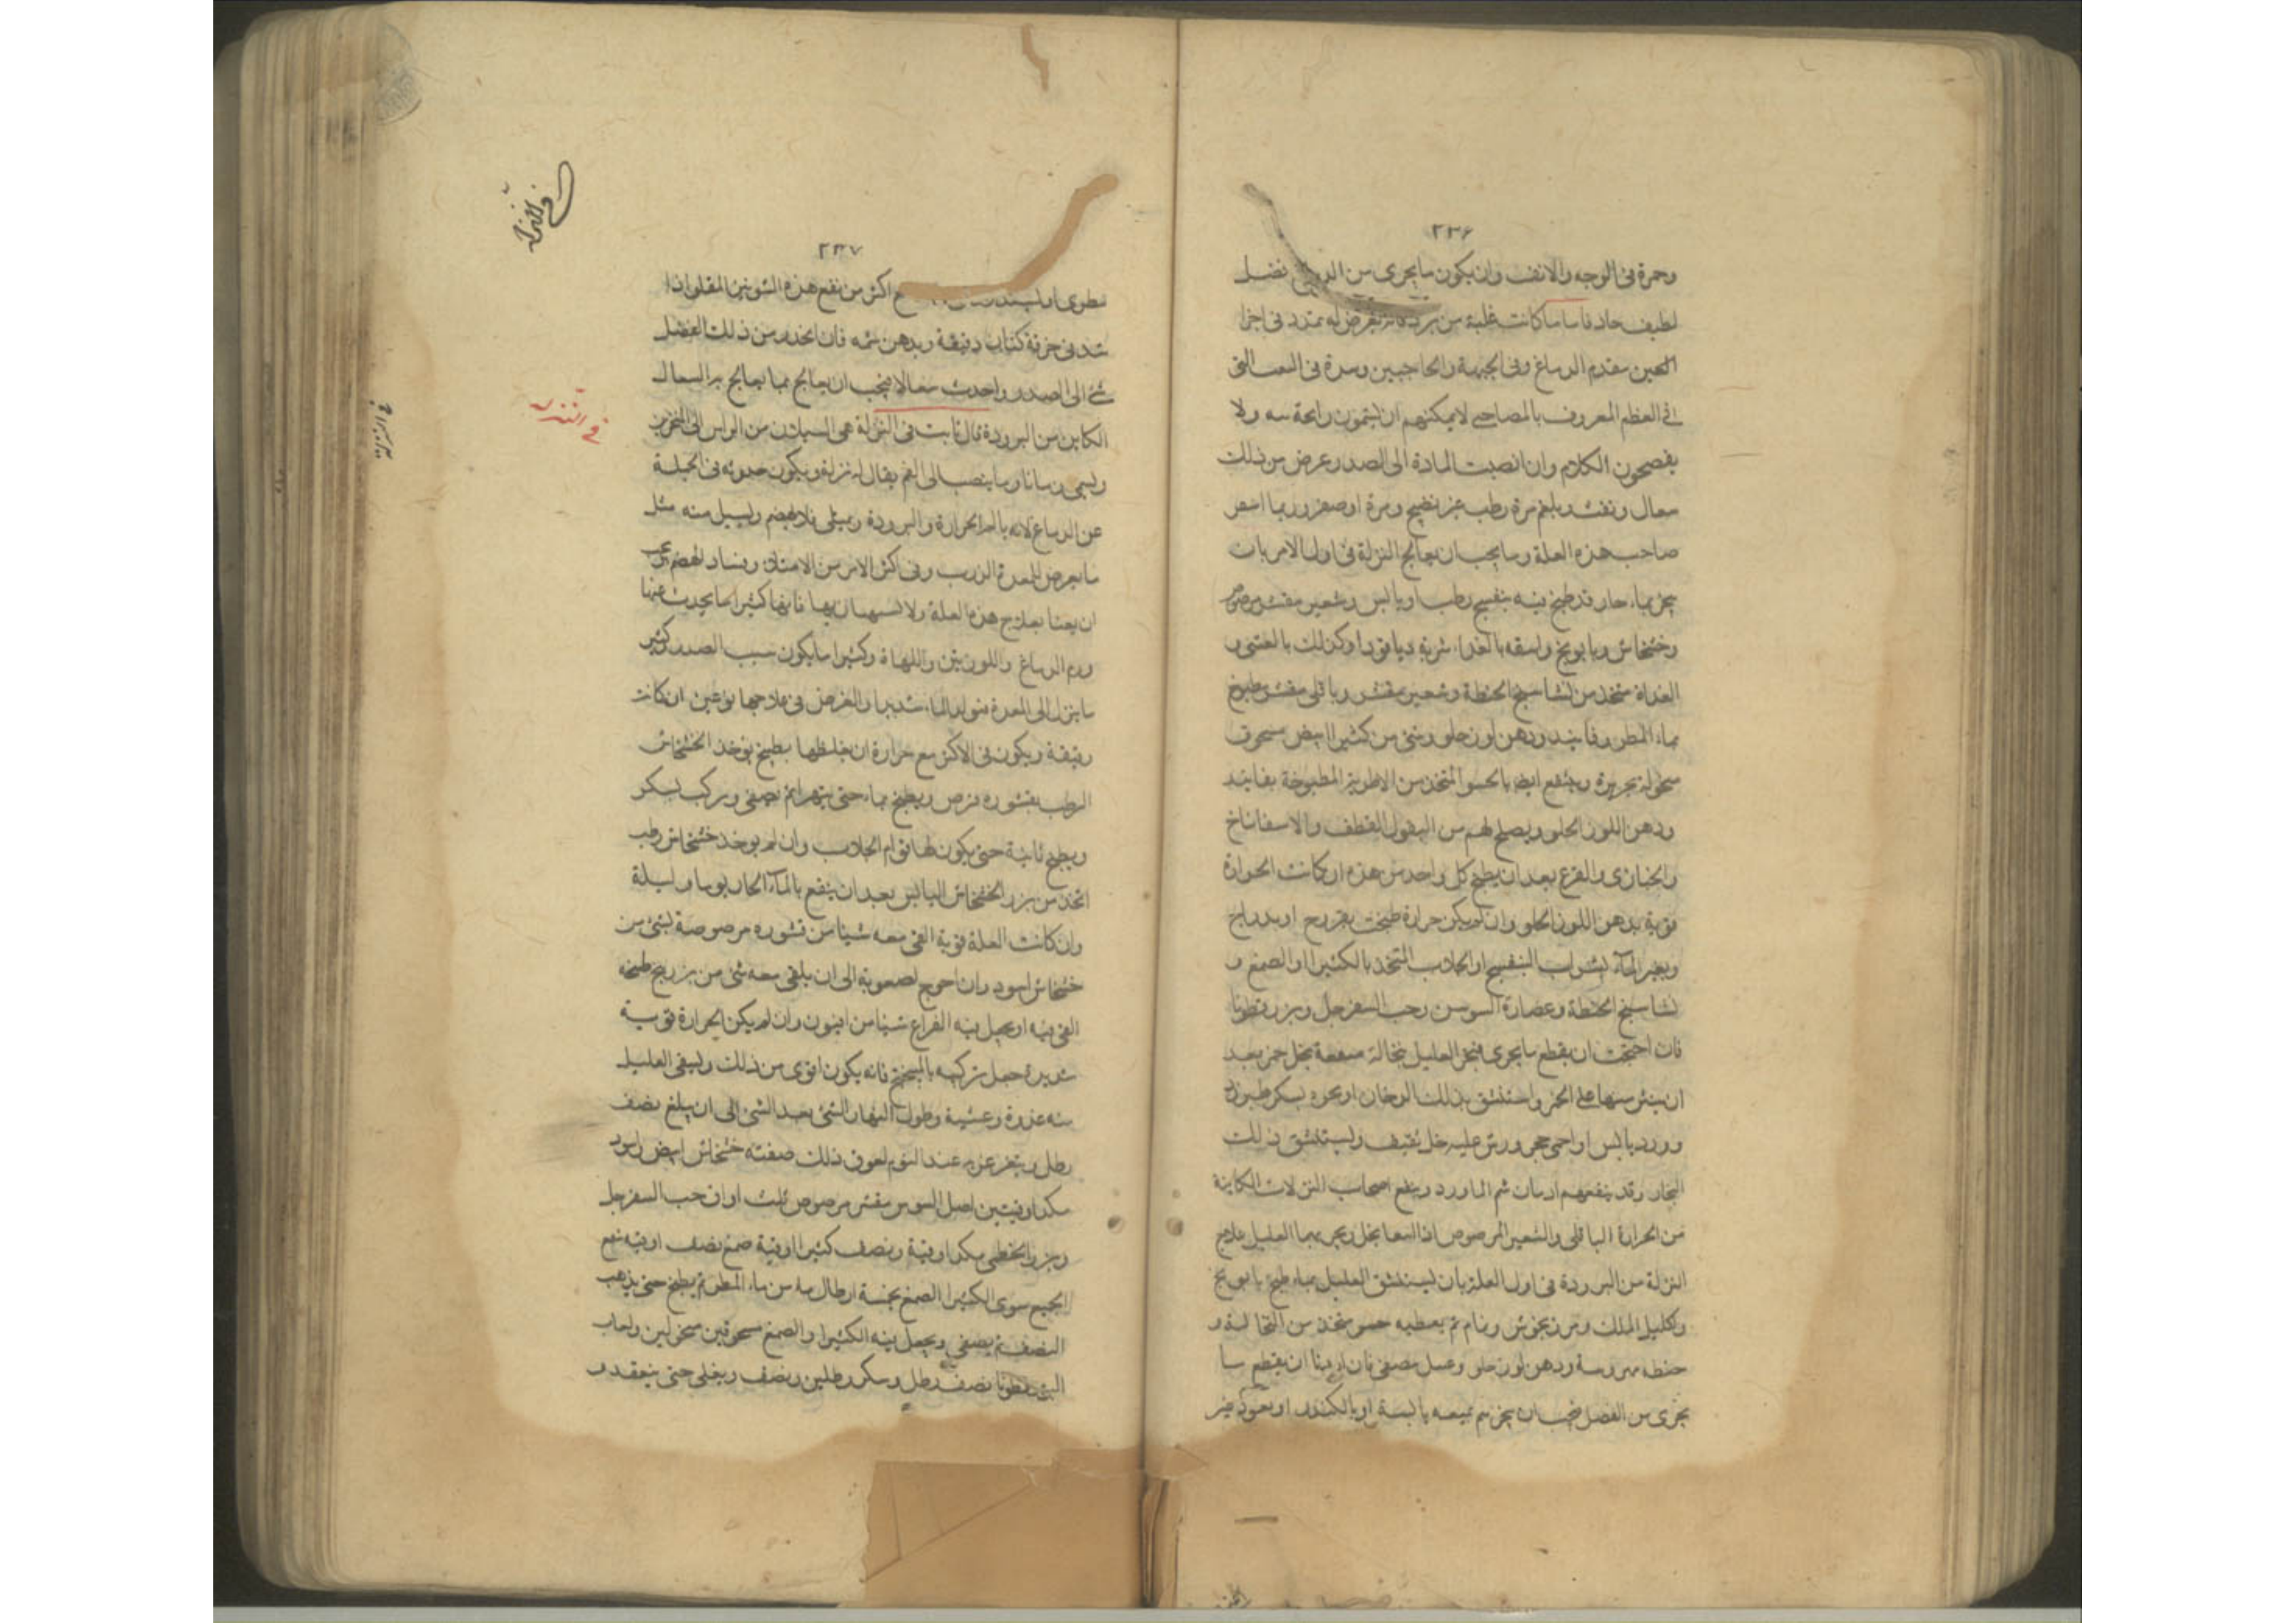 ٢٣۶
وحمرة فى الوجه والانف وان يكون ما يجرى من الدماغ فضل
لطيف حاد فاما ما كانت غلبة من برد فانه يعرض له تمدد فى اجزا
العين مقدم الدماغ وفى الجبهة والحاجبين وسدة فى التى
فى العظم المعروف بالمصاصى لا يمكنهم ان يشمون رايحة سه ولا
يفصحون الكلام وان انصبت المادة الى الصدر عرض من ذلك
سعال ونفث وبلغم مرة رطب غير نضيج ومرة اوصفر وربما اشعر
صاحب هذه العلة ومما يجب ان يعالج النزلة فى اول الامر بان
يبخر بماء حار قد طبخ فيه بنفسج رطب او يابس وشعير مقشر مرضوض
وخشخاش وبابونج واسقه بالغداء شربة دياقودا وكذلك بالعشى و
الغداة متخذ من نشاسج الحنطة وشعير مقشر وباقلى مقشر مطبوخ
بماء المطر وفانيد ودهن لوز حلو وشئ من كثيرا ابيض مسحوق
منخولة بحريرة وينتفع ايضا بالحسو المتخذ من الاطرية المطبوخة بفانيد
ودهن اللوز الحلو ويصلح لهم من البقول القطف والاسفاناخ
والخبازى والقرع بعد ان يطبخ كل واحد من هذه ان كانت الحرارة
قوية بدهن اللوز الحلو وان لم يكن حرارة طبخت بفروج او بدراج
ويغير الماء بشراب البنفسج او الجلاب المتخذ بالكثيرا او الصمغ و
نشاسج الحنطة وعصارة السوسن وحب السفرجل وبزر قطونا
فان احتجت ان يقطع ما يجرى فبخر العليل بنخالة منقعة بخل خمر بعد
ان ينثر منها على الجمر واستنشق بذلك الدخان او بخره بسكر طبرزد
وورد يابس او احمى حجر ورش عليه خل ثقيف ويستنشق ذلك
البخار وقد ينفعهم ادمان شم الماورد وينفع اصحاب النزلات الكاينة
من الحرارة الباقلى والشعير المرضوض اذا انقعا بخل ويبخر بهما العليل علاج
النزلة من البرودة فى اول العلة بان يستنشق العليل بماء طبخ بابونج
واكليل الملك ومرزنجوش ونمام ثم يعطيه حسو متخذ من النخالة و
حنطه مهروسة ودهن لوز حلو وعسل مصفى فان اردنا ان يقطع ما
يجرى من الفضل فيجب ان يبخرهم بميعه يابسة او بالكندر او بعود غير
٢٣٧
فى النزلة
مطرى او اكثر من نفع هذه الشونيز المقلو اذا
شد فى خرقة كتان دقيقة ويدمن شمه فان انحدر من ذلك الفضل
شئ الى الصدر واحدث سعالا فيجب ان يعالج بما يعالج به السعال
فى النزلة
الكاين من البرودة قال ثابت فى النزلة هى السيلان من الراس الى المنخرين
ويسمى زكاما وما ينصب الى الفم يقال له نزلة ويكون حدوثه فى الجملة
عن الدماغ لانه يالم الحرارة والبرودة ويمتلى فلا يهضم ويسيل منه مثل
ما يعرض للمعدة الذرب وفى اكثر الامر من الامتلاء وفساد الهضم فيجب
ان يعنا بعلاج هذه العلة ولا يستهان بها فانها كثيرا ما يحدث عنها
ورم الدماغ واللوزتين واللهاة وكثيرا ما يكون سبب الصدر وكثير
ما ينزل الى المعدة فيولد الما شديدا والغرض فى علاجها نوعين ان كانت
رقيقة ويكون فى الاكثر مع حرارة ان يغلظها بطبيخ يوخذ الخشخاش
الرطب بقشوره فرض ويطبخ بماء حتى يتهرا ثم يصفى ويركب بسكر
ويطبخ ثانية حتى يكون لها قوام الجلاب وان لم يوجد خشخاش رطب
اتخذ من بزر الخشخاش اليابس بعد ان ينقع بالماء الحار يوما وليلة
وان كانت العلة قوية القى معه شيئا من قشوره مرضوضة بشئ من
خشخاش اسود وان احوج لصعوبة الى ان يلقى معه شئ من بزر بنج طبخه
القى فيه او يجعل فيه الفراغ شيئا من افيون وان لم يكن الحرارة قوية
شديدة جعل تركيبه بالميبختج فانه يكون اقوى من ذلك ويسقى العليل
منه غدوة وعشية وطول النهار الشئ بعد الشئ الى ان يبلغ نصف
رطل ويتغرغر به عند النوم لعوق ذلك صفته خشخاش ابيض واسود
مكد اوقيتين اصل السوس مقشر مرضوض ثلث اواق حب السفرجل
وبزر الخطمى مكد اوقية ونصف كثيرا اوقية صمغ نصف اوقية ينقع
الجميع سوى الكثيرا الصمغ بخمسة ارطال ماء من ماء المطر ثم يطبخ حتى يذهب
النصف ثم يصفى ويجعل فيه الكثيرا والصمغ مسحوقين منخولين ولعاب
البزرقطونا نصف رطل وسكر رطلين ونصف ويغلى حتى ينعقد و